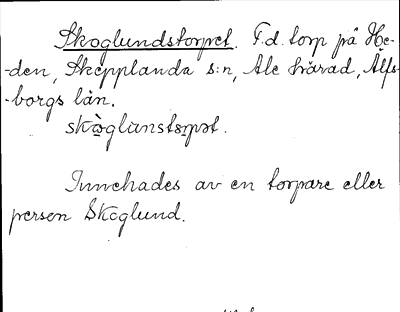 Skoglundstorpet. F.d. torp på He-
-den, Skepplanda s:n, Ale härad, Älfs-
-borgs län.
skòglunstorpət.
Innehades av en torpare eller
person Skoglund.